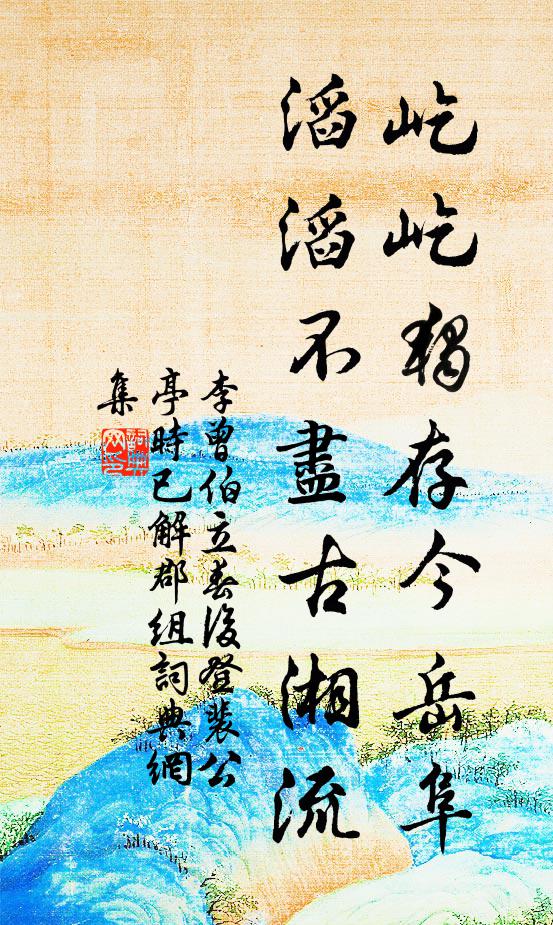 屹屹独存今岳阜
滔滔不盡古湘流
李曾伯立春後登裴公
亭時已解郡組詞典網
集